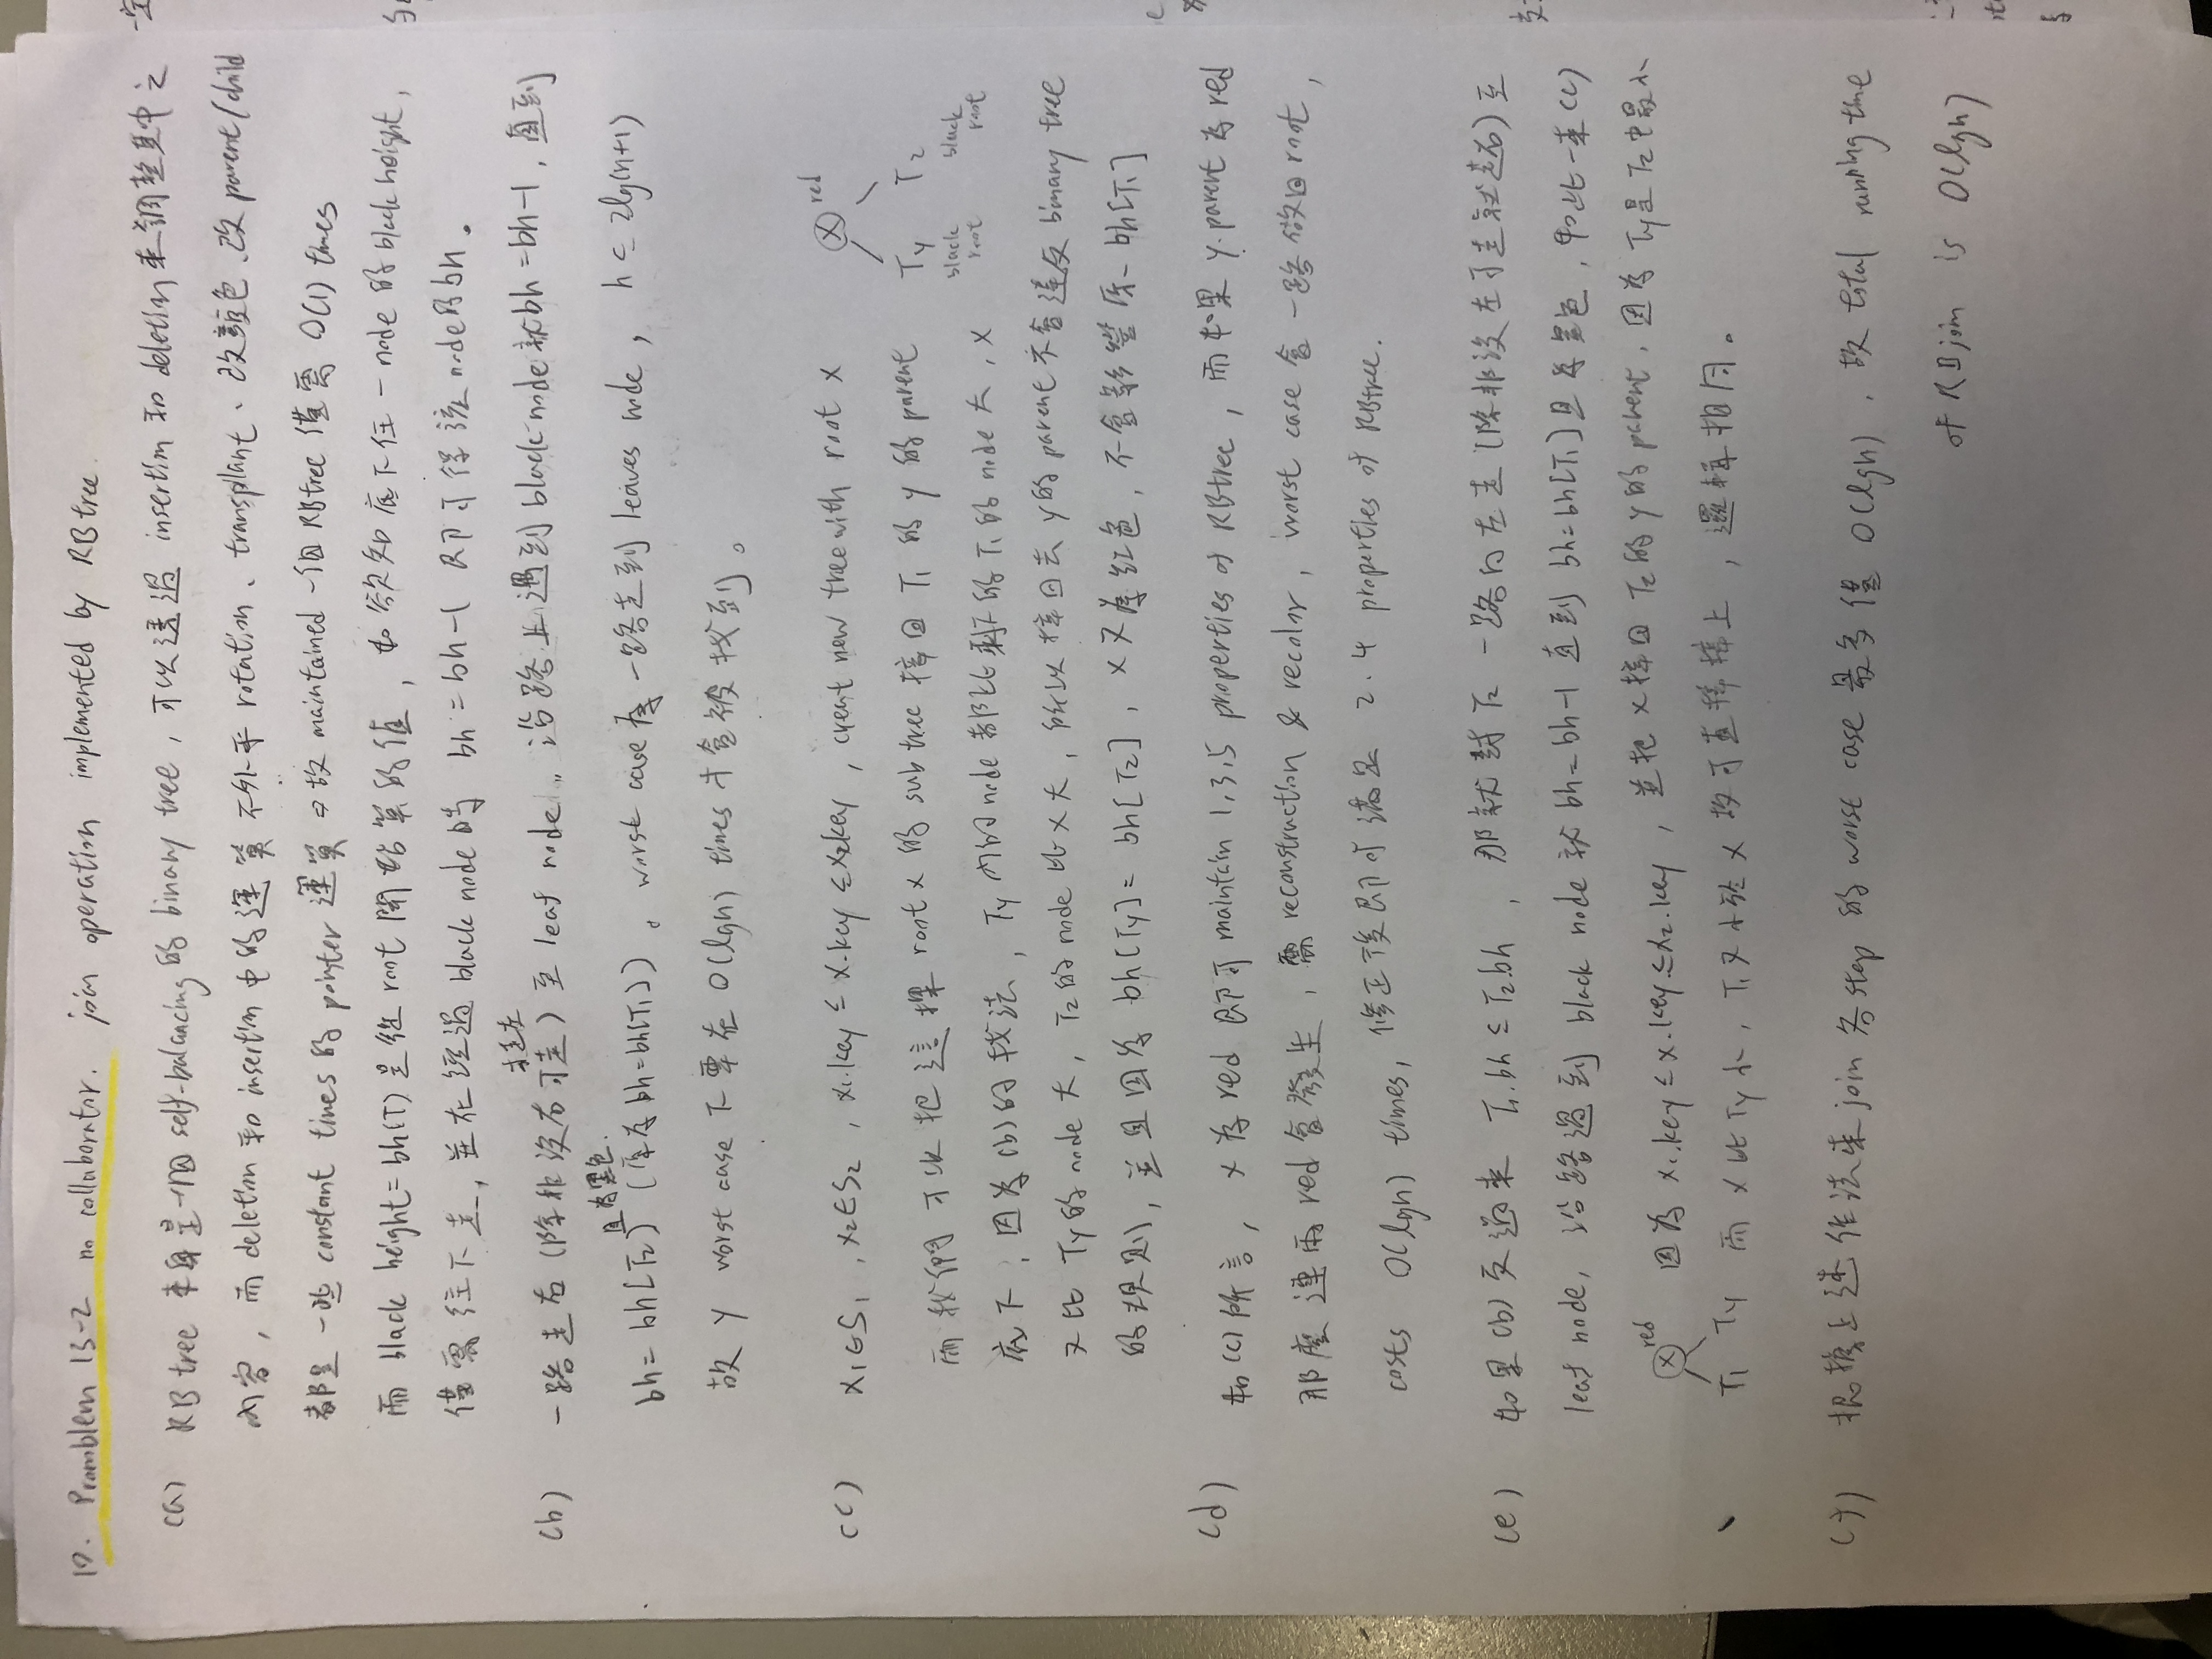 10. Promblem 13-2 no collaborator. join operation implemented by RB tree.
(a) RB tree 本身是一個 self-balancing 的 binary tree, 可以透過 insertion 和 deletion 來調整其中之
內容, 而 deletion 和 insertion 中的運算不外乎 rotation、transplant、改顏色、改 parent/child
都是一些 constant times 的 pointer 運算 ⇒ 故 maintained 一個 RBtree 僅需 O(1) times
而 black height = bh(T) 是從 root 開始算的值, 如欲知底下任一 node 的 black height,
僅需往下走, 並在經過 black node 時 bh = bh-1 即可得該 node 的 bh。
才走左
(b) 一路走右 (除非沒右可走) 至 leaf node, 沿路上遇到 black node 就 bh = bh-1, 直到
且為黑色.
bh = bh[T2] (原為 bh=bh[T1])。worst case 為一路走到 leaves node, h ≤ 2lg(n+1)
故 y worst case 下要在 O(lgn) times 才會被找到。
(c) x1∈S1, x2∈S2, x1.key ≤ x.key ≤ x2.key, creat new tree with root x
X red
而我們可以把這棵 root x 的 subtree 接回 T1 的 y 的 parent
Ty T2
black root black root
底下, 因為 (b) 的找法, Ty 內的 node 都比剩下的 T1 的 node 大, x
又比 Ty 的 node 大, T2 的 node 比 x 大, 所以接回去 y 的 parent 不會違反 binary tree
的規則, 並且因為 bh[Ty] = bh[T2], x 又為紅色, 不會影響原 bh[T1]
(d) 如 (c) 所言, x 為 red 即可 maintain 1,3,5 properties of RBtree, 而如果 y.parent 為 red
那麼連兩 red 會發生, 需 reconstruction & recolor, worst case 會一路做回 root,
costs O(lgn) times, 修正後即可滿足 2.4 properties of RBtree.
(e) 如果 (b) 反過來 T1.bh ≤ T2.bh, 那就對 T2 一路向左走 (除非沒左可走就走右) 至
leaf node, 沿路遇到 black node 就 bh = bh-1 直到 bh=bh[T1] 且為黑色, 如此一來 (c)
X red 因為 x1.key ≤ x.key ≤ x2.key, 並把 x 接回 T2 的 y 的 parent, 因為 Ty 是 T2 中最小
T1 Ty 而 x 比 Ty 小, T1 又小於 x 故可直接接上, 邏輯相同。
(f) 根據上述作法來 join 各 step 的 worst case 最多僅 O(lgn), 故 total running time
of RB join is O(lgn)